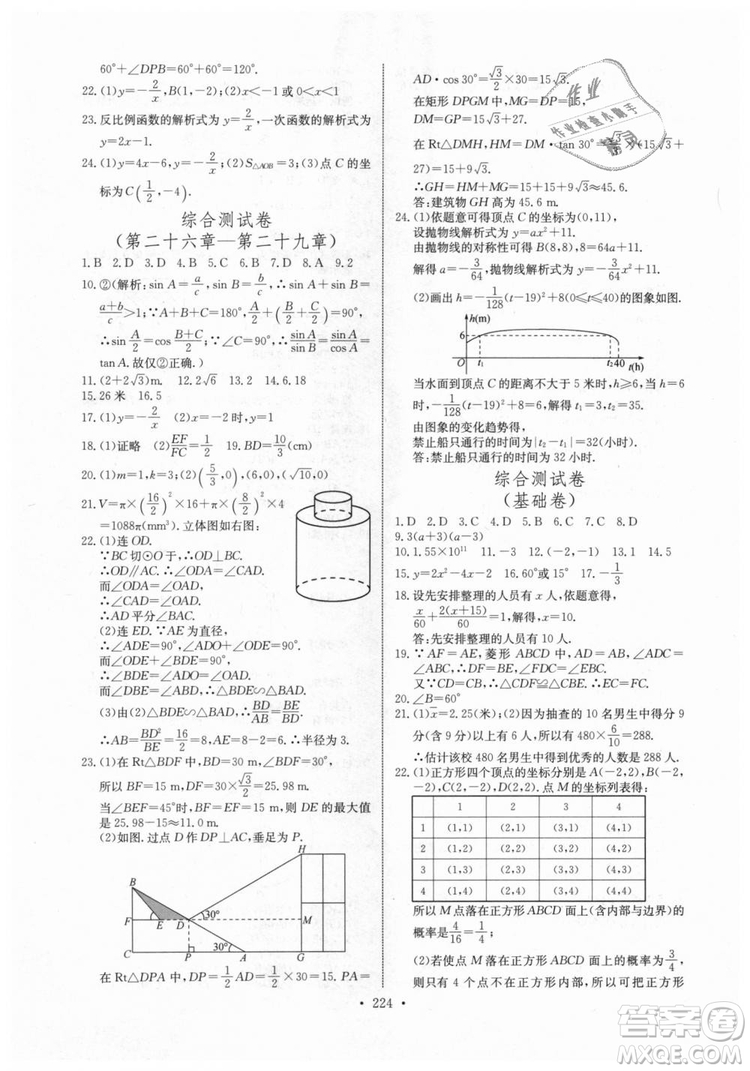 60°+∠DPB=60°+60°=120°.
22. (1)y=-2/x,B(1,-2);(2)x<-1 或 0<x<1
23. 反比例函数的解析式为 y=2/x,一次函数的解析式为
y=2x.
24. (1)y=4x-6,y=-2/x;(2)S△AOB=3;(3)点 C 的坐
标为 C(1/2,-4).
综合测试卷
(第二十六章—第二十九章)
1. B 2. D 3. D 4. D 5. D 6. B 7. D 8. A 9. 2
10. ②(解析:sin A=a/c,sin B=b/c,∴sin A+sin B=
(a+b)/c>1;∵A+B+C=180°,A/2+(B+C)/2=90°,
∴sin A/2=cos (B+C)/2;∵
tan A. 故仅②正确.)
11. (2+2√3)m. 12. 2√6 13. 4 14. 6.18
15. 26 米 16. 5
17. (1)y=-2/x (2)当 x=-2 时
18. (1)证略 (2)EF/FC=1/2 19. BD=10/3(cm)
20. (1)m=1,k=2 (2)(5/3,0),(6,0),(√10,0)
21. V=π×(16/2)²×16+π×(8/2)²×4
=1088π(mm³). 立体图如右图:
22. (1)连 OD.
∵BC 切⊙O 于点 D,∴∠ODB=90°.
∴OD∥AC. ∴∠ODA=∠CAD.
而∠ODA=∠OAD.
∴∠CAD=∠OAD.
∴AD 平分∠BAC.
(2)连 ED. ∵AE 为直径,
∴∠ADE=90°,∠ADO+∠ODE=90°.
而∠ODE+∠BDE=90°,∴∠ADO=∠BDE.
而∠DBE=∠DBA,∴△BDE∽△BAD.
(3)由(2)△BDE∽△BAD,∴BD/AB=BE/BD
∴AB=BD²/BE=16/2=8,AE=8-2=6. ∴半径为 3.
23. (1)在 Rt△BDF 中,BD=30,∠BDF=30°,
所以 BF=15 m,DF=25.98 m.
当∠BEF=45°时,EF=15 m. 所以 DE 的最大值
是 25.98-15≈11.0 m.
(2)如图. 过点 D 作 DP⊥AC,垂足为 P.
B
H
F
E
D
30°
M
C
P
30°
A
G
在 Rt△DPA 中,DP=1/2 AD=1/2×30=15. PA=
AD·cos 30°=√3/2×30=15√3.
在矩形 DPGM 中,MG=DP=15,
DM=GP=15√3+27.
在 Rt△DMH,HM=DM·tan 30°=√3/3×(15√3+
27)=15+9√3.
∴GH=HM+MG=15+15+9√3≈45.6.
答:建筑物 GH 高为 45.6 m.
24. (1)依题意可得顶点 C 的坐标为(0,11),
设抛物线解析式为 y=ax²+11.
由抛物线的对称性可得 B(8,8),∴8=64a+11.
解得 a=-3/64,抛物线解析式为 y=-3/64x²+11.
(2)画出 h=-1/128(t-19)²+8(0≤t≤40)的图象如图.
h(m)
6
0
t₁
t₂
40
t(h)
当水面到顶点 C 的距离不大于 5 米时,h≥6,当 h=6
时,-1/128(t-19)²+8=6,解得 t₁=3,t₂=35.
由图象的变化趋势得,
禁止船只通行时间为|t₂-t₁|=32(小时).
答:禁止船只通行时间为 32 小时.
综合测试卷
(基础卷)
1. D 2. D 3. D 4. C 5. B 6. B 7. C 8. D
9. 3(a+3)(a-3)
10. 1.55×10¹¹ 11. (-2,-1) 12. > 13. 1 14. 5
15. y=2x²-4x 16. 60°或 120° 17. -1/3
18. 设先安排整理的人员有 x 人,依题意得,
x/60+2(x+15)/60=1,解得,x=10.
答:先安排整理的人员有 10 人.
19. ∵AF=AE,菱形 ABCD 中,AB=AD,∴BE=DF.
又∵CD=CB,∠D=∠B,∴△CDF≌△CBE.
20. ∠B=60°
21. (1)x̄=2.25(米);(2)因为抽查的 10 名男生中得分 9
分(含 9 分)以上有 6 人,所以有 480×6/10=288.
∴估计该校 480 名男生中得到优秀的人数是 288 人.
22. (1)正方形四个顶点的坐标分别是 A(-2,2),B(-2,
-2),C(2,-2),D(2,2). 点 M 的坐标列表得:
1 2 3 4
1 (1,1) (2,1) (3,1) (4,1)
2 (1,2) (2,2) (3,2) (4,2)
3 (1,3) (2,3) (3,3) (4,3)
4 (1,4) (2,4) (3,4) (4,4)
所以 M 点落在正方形 ABCD 面上(含内部与边界)的
概率是4/16=1/4;
(2)若使点 M 落在正方形 ABCD 面上的概率为3/4,
则只有 4 个点不在正方形内部,所以把正方形
· 224 ·
作业
作业检查小助手
答案圈
MXQE.COM